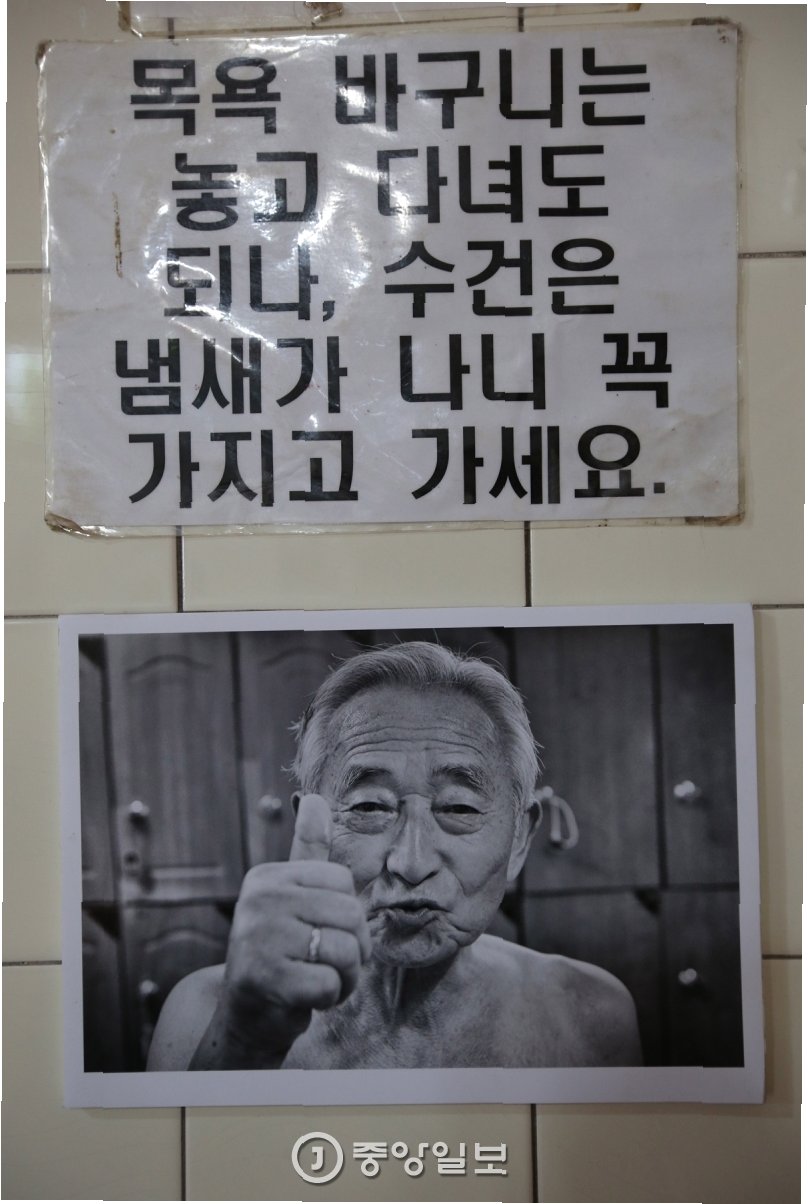 목욕 바구니는
놓고 다녀도
되나, 수건은
냄새가 나니 꼭
가지고 가세요.
J 중앙일보